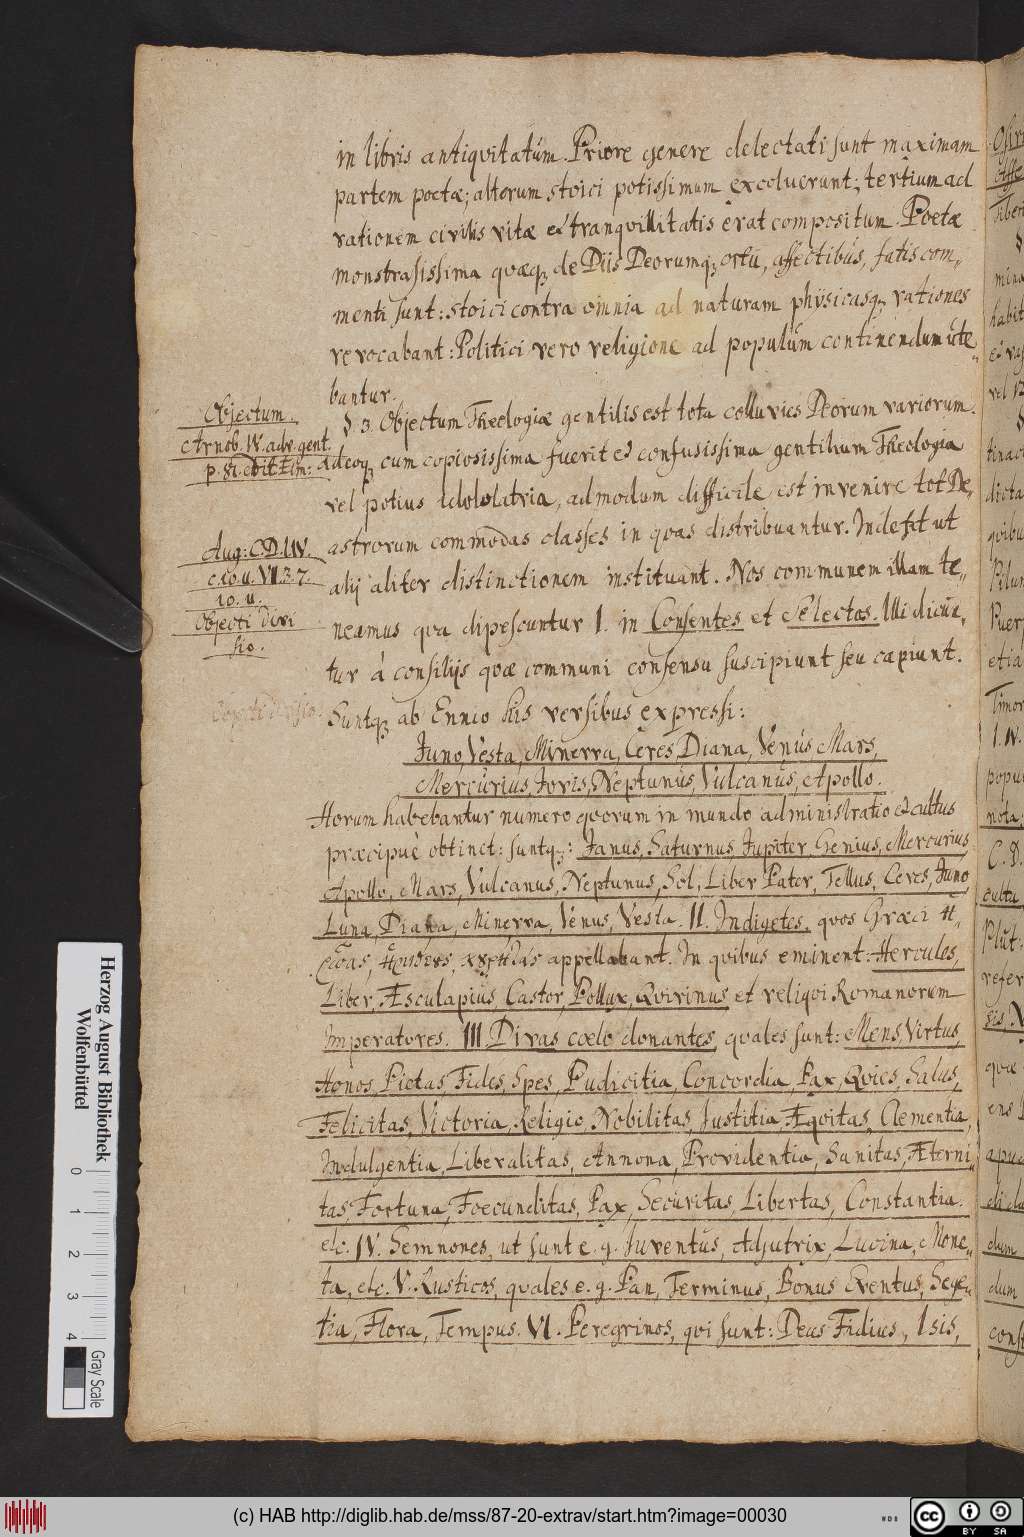 in libris antiqvitatúm. Priore genere delectati sunt maximam
partem poetæ; alterum stoici potissimum excoluerunt; tertium ad
rationem civilis vitæ et tranqvillitatis erat compositum. Poetæ
monstrasissima qvæq; de Diis Deorumq; ortu, affectibús, fatis com„
menti sunt: stoici contra omnia ad naturam physicasq; rationes
revocabant: Politici vero religione ad populúm continendum ute„
bantur.
Objectum.
§ 3. Objectum Theologiæ gentilis est tota colluvies Deorum variorum.
Arnob. IV. adv. gent.
p. 81. edit.
Adeoq; cum copiosissima fuerit et confusissima gentilium Theologia
vel potius Idololatria, admodum difficile est invenire tot De„
Aug: C.D. l IV.
astrorum commodas classes in qvas distribuantur. Inde fit ut
c. 10. u. VII. 3. 7.
alij aliter distinctionem instituant. Nos communem illam te„
10. u.
Objecti divi
sio.
neamus qva dipescuntur I. in Consentes et Selectos. Illi dicun„
tur à consilijs qvæ communi consensu suscipiunt seu capiunt.
Objecti divisio.
Suntq; ab Ennio his versibus expressi:
Juno, Vesta, Minerva, Ceres, Diana, Venús Mars,
Mercurius, Jovis, Neptunús, Vulcanús, Apollo.
Horum habebantur numero qvorum in mundo administratio et cultus
præcipuè obtinet: suntq;: Janus, Saturnus, Jupiter, Genius, Mercurius,
Apollo, Mars, Vulcanus, Neptunus, Sol, Liber Pater, Tellus, Ceres, Juno,
Luna, Diana, Minerva, Venus, Vesta. II. Indigetes, qvos Græci
appellabant. In qvibus eminent: Hercules,
Liber, Æsculapiús, Castor, Pollux, Qvirinus et reliqvi Romanorum
Imperatores. III. Divas coelo donantes, qvales sunt: Mens, Virtus,
Honos, Pietas, Fides, Spes, Pudicitia, Concordia, Pax, Qvies, Salus,
Felicitas, Victoria, Religio, Nobilitas, Justitia, Æqvitas, Clementia,
Indulgentia, Liberalitas, Annona, Providentia, Sanitas, Æterni„
tas, Fortuna, Foecunditas, Pax, Securitas, Libertas, Constantia.
etc. IV. Semnones, ut sunt e. g. Juventús, Adjutrix, Lucina, Mone„
ta, etc. V. Rusticos, qvales e. g. Pan, Terminus, Bonus Eventus, Sege„
tia, Flora, Tempus. VI. Peregrinos, qvi sunt: Deus Fidius, Isis,
Herzog August Bibliothek
Wolfenbüttel
0 1 2 3 4
Gray Scale
(c) HAB http://diglib.hab.de/mss/87-20-extrav/start.htm?image=00030
cc BY SA